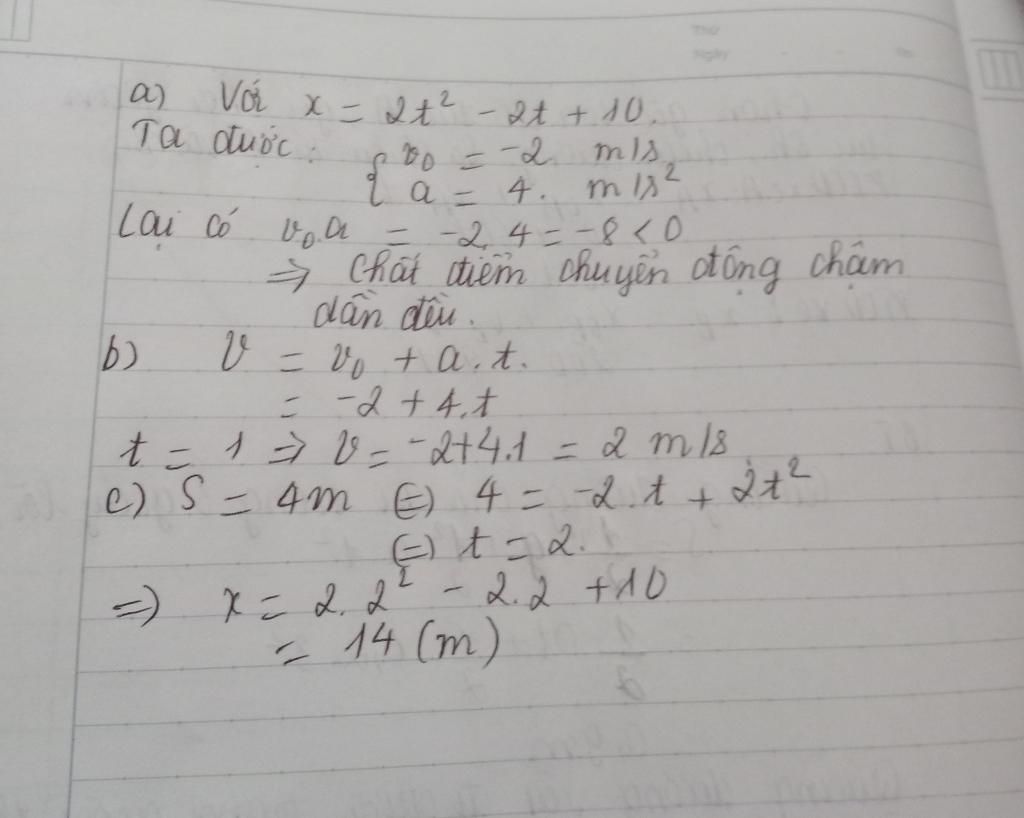 Thứ
Ngày
a) Với x = 2t² - 2t + 10.
Ta được: { v₀ = -2 m/s
a = 4. m/s²
Lại có v₀.a = -2.4 = -8 < 0
=> Chất điểm chuyển động chậm
dần đều.
b) v = v₀ + a.t.
= -2 + 4.t
t = 1 => v = -2+4.1 = 2 m/s
c) S = 4m (=) 4 = -2.t + 2t²
(=) t = 2.
=) x = 2.2² - 2.2 + 10
= 14 (m)